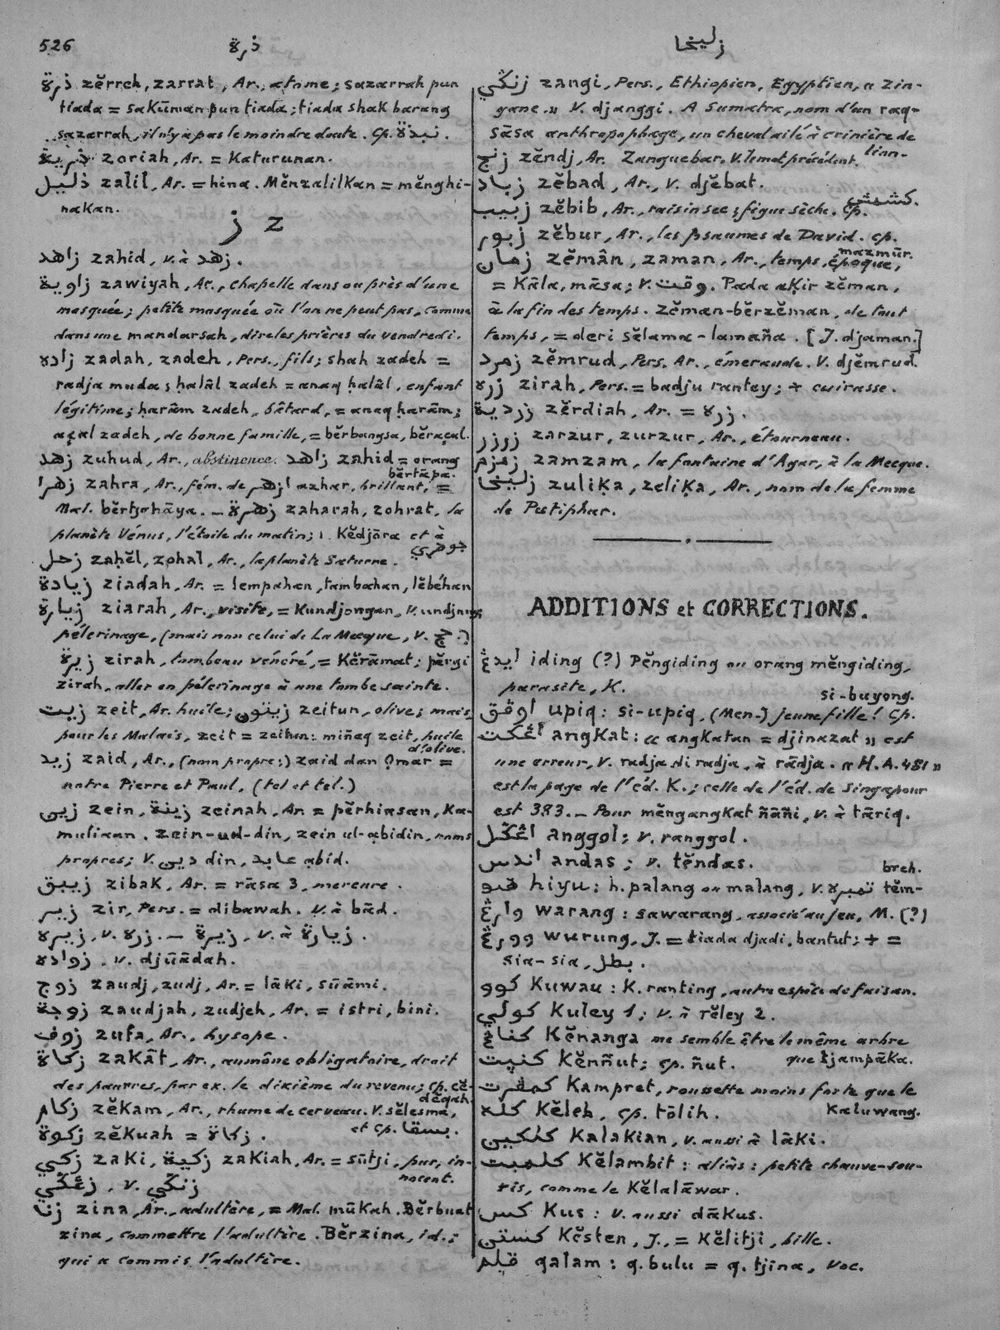 526
ذرة
زليخا
ذرة zĕrreh, zarrat, Ar., atome; sazarrah pun
tiada = sakūman pun tiada; tiada shak barang
sazarrah, il n'y a pas le moindre doute. Cp. نبذة.
ذرية zoriah, Ar. = Katurunan.
ذليل zalil, Ar. = hina. Mĕnzalilkan = mĕnghi-
nakan.
ز z
زاهد zahid, v. à زهد.
زاوية zawiyah, Ar., chapelle dans ou près d'une
mosquée; petite mosquée où l'on ne peut pas, comme
dans une mandarsah, dire les prières du vendredi.
زاده zadah, zadeh, Pers., fils; shah zadeh =
radja muda; ḥalāl zadeh = anaq ḥalāl, enfant
légitime; ḥarām zadeh, bâtard, = anaq ḥarām;
açal zadeh, de bonne famille, = bĕrbangsa, bĕraçal.
زهد zuhud, Ar., abstinence. زاهد zahid = orang
bĕrtāpa.
زهرا zahra, Ar., fém. de ازهر azhar, brillant, =
Mal. bĕrtjahāya. — زهرة zaharah, zohrat, la
planète Vénus, l'étoile du matin; v. Kĕdjāra et à
جوهري
زحل zaḥĕl, zoḥal, Ar., la planète Saturne.
زيادة ziadah, Ar. = lempahan, tambahan, lĕbéhan
زيارة ziarah, Ar., visite, = Kundjongan, v. undjung;
pélerinage, (mais non celui de La Mecque, v. حج.)
زيرة zirah, tombeau vénéré, = Kĕrāmat; pĕrgi
zirah, aller en pélerinage à une tombe sainte.
زيت zeit, Ar. huile; زيتون zeitun, olive; mais
pour les Malais, zeit = zeitun: miñaq zeit, huile
d'olive.
زيد zaid, Ar., (nom propre;) zaid dan Omar =
notre Pierre et Paul, (tel et tel.)
زين zein, زينة zeinah, Ar. = pĕrhiasan, Ka-
muliaan. zein-ud-din, zein ul-abidin, noms
propres; v. دين din, عابد abid.
زيبق zibak, Ar. = rāsa 3, mercure.
زير zir, Pers. = dibawah. v. à bād.
زيره, v. زره. — زيرة, v. à زيارة.
زواده, v. djūādah.
زوج zaudj, zudj, Ar. = lāki, sūāmi.
زوجة zaudjah, zudjeh, Ar. = istri, bini.
زوف zufa, Ar., hysope.
زكاة zakāt, Ar., aumône obligatoire, droit
des pauvres, par ex. le dixième du revenu; cp. cĕ-
dĕqah.
زكام zĕkam, Ar., rhume de cerveau. v. sĕlesma,
et cp. بسقا.
زكوة zĕkuah = زكاة.
زكي zaki, زكية zakiah, Ar. = sūtji, pur, in-
nocent.
زڠكي, v. زنكي
زنا zina, Ar., adultère, = Mal. mūkah. Bĕrbuat
zina, commettre l'adultère. Bĕrzina, id.;
qui a commis l'adultère.
زنكي zangi, Pers., Ethiopien, Egyptien, « Zin-
gane.» V. djanggi. A Sumatra, nom d'un raq-
sāsa anthropophage, un cheval ailé à crinière de
lion.
زنج zĕndj, Ar. Zanguebar. V. le mot précédent.
زباد zĕbad, Ar., v. djĕbat.
زبيب zĕbib, Ar., raisin sec; figue sèche. Cp. كشمش.
زبور zĕbur, Ar., les psaumes de David. Cp.
mazmūr.
زمان zĕmān, zaman, Ar., temps, époque,
= Kāla, māsa; v. وقت. Pada aḳir zĕman,
à la fin des temps. Zĕman-bĕrzĕman, de tout
temps, = deri sĕlama-lamaña. [J. djaman.]
زمرد zĕmrud, Pers. Ar., émeraude. V. djĕmrud.
زره zirah, Pers. = badju rantey; + cuirasse.
زردية zĕrdiah, Ar. = زره.
زرزر zarzur, zurzur, Ar., étourneau.
زمزم zamzam, la fontaine d'Agar, à la Mecque.
زليخا zuliḳa, zeliḳa, Ar., nom de la femme
de Putiphar.
ADDITIONS et CORRECTIONS.
ايدڠ iding (?) Pĕngiding ou orang mĕngiding,
parasite, K.
si-buyong.
اوفق upiq: si-upiq, (Men-) jeune fille! Cp.
اڠكت angkat: « angkatan = djinazat » est
une erreur, v. radja di radja, à rādja. « H.A. 481 »
est la page de l'éd. K.; celle de l'éd. de Singapour
est 383. — Pour mĕngangkat ñañi, v. à tāriq.
اڠكل anggol; v. ranggol.
اندس andas; v. tĕndas.
breh.
هيو hiyu: h. palang ou malang, v. تمبره tĕm-
وارڠ warang: sawarang, associé au jeu, M. (?)
وورڠ wurung, J. = tiada djadi, bantut; + =
sia-sia, بطل.
كوو Kuwau: K. ranting, autre espèce de faisan.
كولي Kuley 1; v. à rĕley 2.
كناڠ Kĕnanga me semble être le même arbre
que tjampāka.
كنيت Kĕnñut; cp. ñut.
كمفرت Kampret, roussette moins forte que le
Kaluwang.
كله Kĕleh, cp. tōlih.
كلكين Kalakian, v. aussi à lāki.
كلمبت Kĕlambit: aliàs: petite chauve-sou-
ris, comme le Kĕlalāwar.
كس Kus: v. aussi dākus.
كستي Kĕsten, J., = Kĕlitji, bille.
قلم qalam: q. bulu = q. tjina, voc.